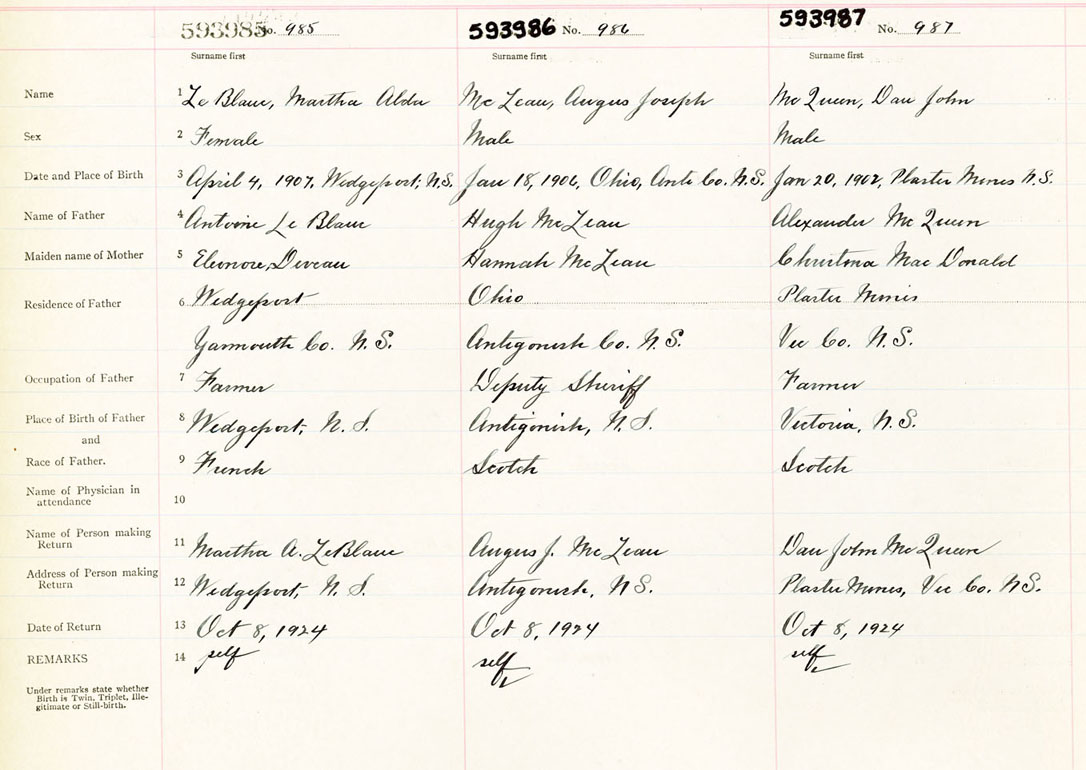 593985 No. 985 593986 No. 986 593987 No. 987
Surname first Surname first Surname first
Name 1 Le Blanc, Martha Alda Mc Lean, Angus Joseph Mc Queen, Dan John
Sex 2 Female Male Male
Date and Place of Birth 3 April 4, 1907, Wedgeport, N.S. Jan 18, 1906, Ohio, Anti Co. N.S. Jan 20, 1902, Plaster Mines N.S.
Name of Father 4 Antoine Le Blanc Hugh McLean Alexander Mc Queen
Maiden name of Mother 5 Eleonore Deveau Hannah McLean Christina Mac Donald
Residence of Father 6 Wedgeport Ohio Plaster Mines
Yarmouth Co. N.S. Antigonish Co. N.S. Vic Co. N.S.
Occupation of Father 7 Farmer Deputy Sheriff Farmer
Place of Birth of Father 8 Wedgeport, N.S. Antigonish, N.S. Victoria, N.S.
and
Race of Father. 9 French Scotch Scotch
Name of Physician in
attendance 10
Name of Person making
Return 11 Martha A. LeBlanc Angus J. McLean Dan John McQueen
Address of Person making
Return 12 Wedgeport, N.S. Antigonish, N.S. Plaster Mines, Vic Co. N.S.
Date of Return 13 Oct 8, 1924 Oct 8, 1924 Oct 8, 1924
REMARKS 14 self self self
Under remarks state whether
Birth is Twin, Triplet, Ille-
gitimate or Still-birth.